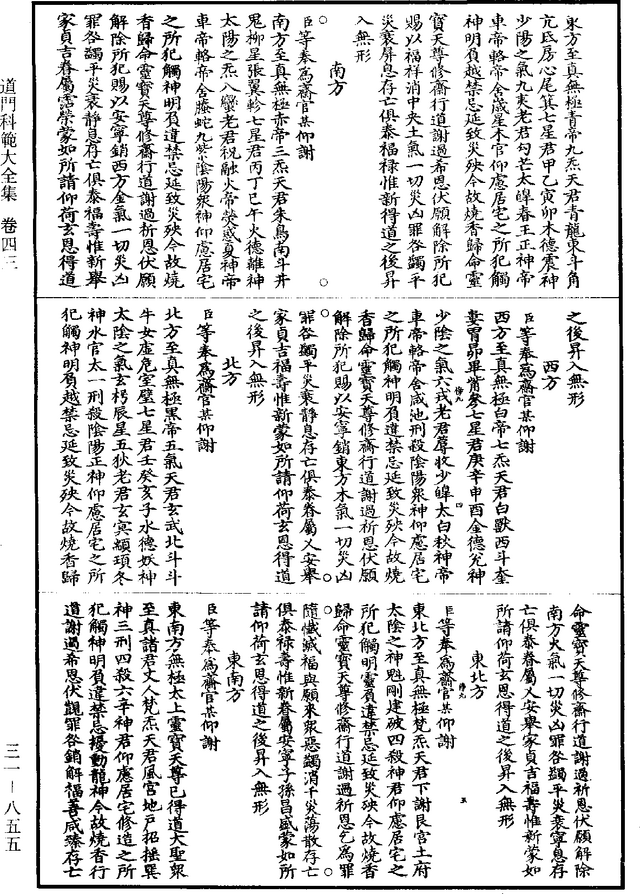 東方至真無極青帝九炁天君青龍東斗角
亢氐房心尾箕七星君甲乙寅卯木德震神
少陽之氣九夷老君勾芒太皥春王正神帝
車帝輅帝舍歲星木官仰慮居宅之所犯觸
神明負越禁忌延致災殃今故燒香歸命靈
寶天尊修齋行道謝過希恩伏願解除所犯
賜以福祥消中央土氣一切災凶罪咎蠲平
災衰屏息存亡俱泰福祿惟新得道之後昇
入無形
南方
臣等奉為齋官某仰謝
南方至真無極赤帝三炁天君朱鳥南斗井
鬼柳星張翼軫七星君丙丁巳午火德離神
太陽之炁八蠻老君祝融火帝熒惑夏神帝
車帝輅帝舍騰蛇九紫陰陽眾神仰慮居宅
之所犯觸神明負違禁忌延致災殃今故燒
香歸命靈寶天尊修齋行道謝過祈恩伏願
解除所犯賜以安寧銷西方金氣一切災凶
罪咎蠲平災衰靜息存亡俱泰福壽惟新舉
家貞吉眷屬霑榮蒙如所請仰荷玄恩得道
之後昇入無形
西方
臣等奉為齋官某仰謝
西方至真無極白帝七炁天君白獸西斗奎
婁胃昴畢觜參七星君庚辛申酉金德兌神
少陰之氣六戎老君蓐收少皥太白秋神帝
車帝輅帝舍咸池刑殺陰陽眾神仰慮居宅
之所犯觸神明負違禁忌延致災殃今故燒
香歸命靈寶天尊修齋行道謝過祈恩伏願
解除所犯賜以安寧銷東方木氣一切災凶
罪咎蠲平災衰靜息存亡俱泰眷屬乂安舉
家貞吉福壽惟新蒙如所請仰荷玄恩得道
之後昇入無形
北方
臣等奉為齋官某仰謝
北方至真無極黑帝五氣天君玄武北斗斗
牛女虛危室壁七星君壬癸亥子水德妖神
太陰之氣玄枵辰星五狄老君玄冥顓頊冬
神水官太一刑殺陰陽正神仰慮居宅之所
犯觸神明負越禁忌延致災殃今故燒香歸
命靈寶天尊修齋行道謝過祈恩伏願解除
南方火氣一切災凶罪咎蠲平災衰寧息存
亡俱泰眷屬乂安舉家貞吉福壽惟新蒙如
所請仰荷玄恩得道之後昇入無形
東北方
臣等奉為齋官某仰謝
東北方至真無極梵炁天君下謝艮宮土府
太陰之神魁剛建破四殺神君仰慮居宅之
所犯觸明靈負違禁忌延致災殃今故燒香
歸命靈寶天尊修齋行道謝過祈恩乞為罪
隨懺滅福與願來眾惡蠲消千災蕩散存亡
俱泰祿壽惟新眷屬安寧子孫昌盛蒙如所
請仰荷玄恩得道之後昇入無形
東南方
臣等奉為齋官某仰謝
東南方無極太上靈寶天尊已得道大聖眾
至真諸君丈人梵炁天君風宮地戶招搖巽
神三刑四殺六辛神君仰慮居宅修造之所
犯觸神明負違禁忌擾動龍神今故燒香行
道謝過希恩伏覬罪咎銷解福善咸臻存亡
道門科範大全集 卷四三
三一－八五五